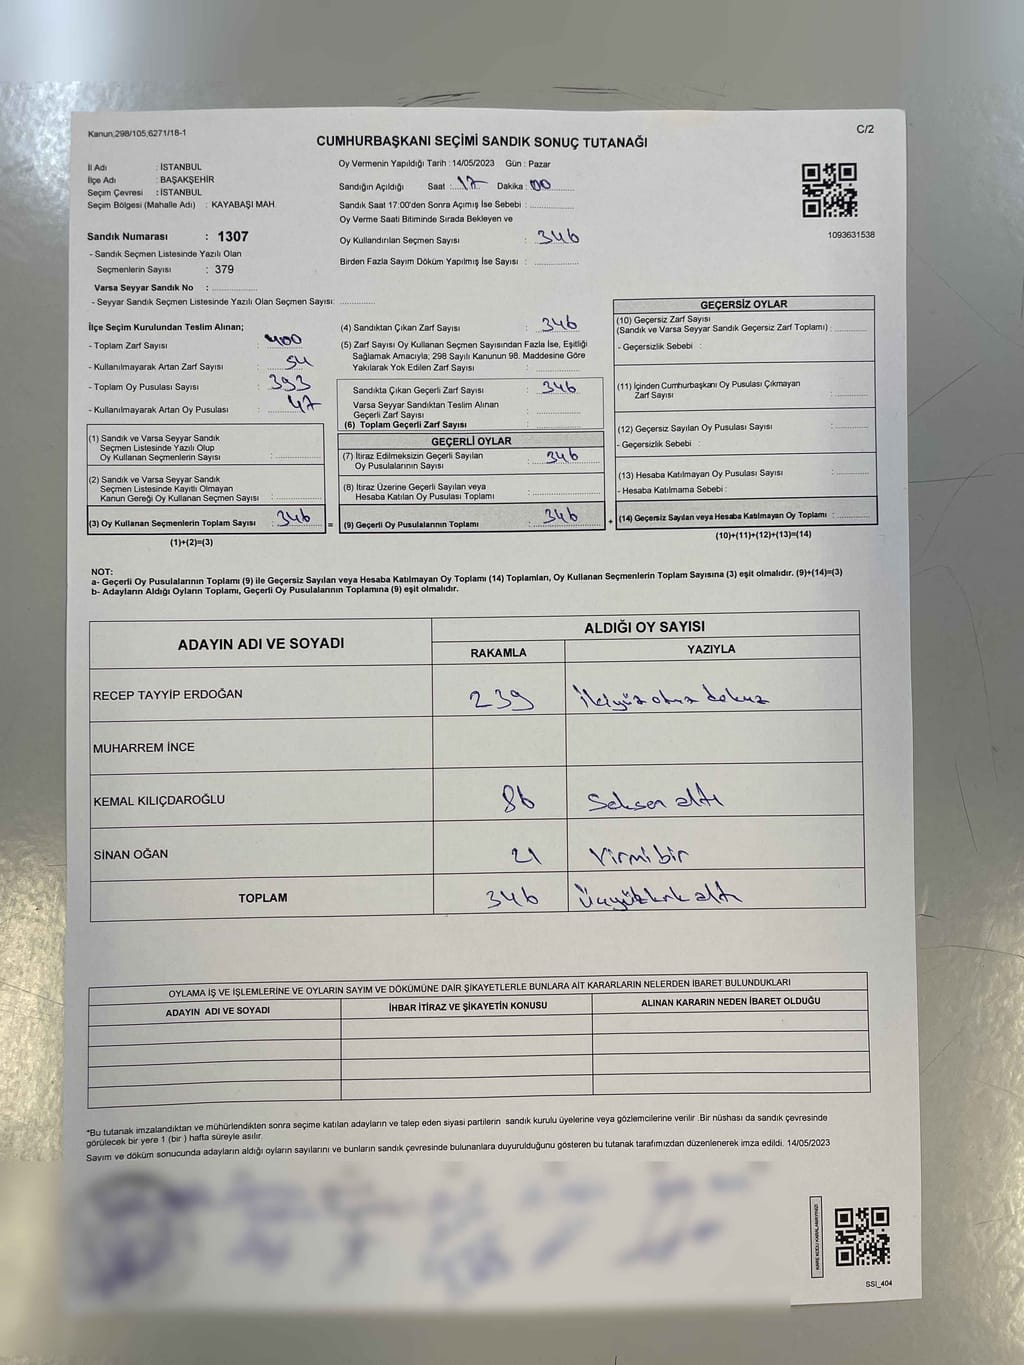 Kanun;298/105;6271/18-1
C/2
CUMHURBAŞKANI SEÇİMİ SANDIK SONUÇ TUTANAĞI
İl Adı : İSTANBUL
İlçe Adı : BAŞAKŞEHİR
Seçim Çevresi : İSTANBUL
Seçim Bölgesi (Mahalle Adı) : KAYABAŞI MAH.
Oy Vermenin Yapıldığı Tarih : 14/05/2023 Gün : Pazar
Sandığın Açıldığı Saat : 17 Dakika : 00
Sandık Saat 17:00'den Sonra Açımış İse Sebebi :
Oy Verme Saati Bitiminde Sırada Bekleyen ve
Oy Kullandırılan Seçmen Sayısı : 346
Birden Fazla Sayım Döküm Yapılmış İse Sayısı :
1093631538
Sandık Numarası : 1307
- Sandık Seçmen Listesinde Yazılı Olan
Seçmenlerin Sayısı : 379
Varsa Seyyar Sandık No :
- Seyyar Sandık Seçmen Listesinde Yazılı Olan Seçmen Sayısı:
İlçe Seçim Kurulundan Teslim Alınan;
- Toplam Zarf Sayısı : 400
- Kullanılmayarak Artan Zarf Sayısı : 54
- Toplam Oy Pusulası Sayısı : 393
- Kullanılmayarak Artan Oy Pusulası : 47
(1) Sandık ve Varsa Seyyar Sandık
Seçmen Listesinde Yazılı Olup
Oy Kullanan Seçmenlerin Sayısı :
(2) Sandık ve Varsa Seyyar Sandık
Seçmen Listesinde Kayıtlı Olmayan
Kanun Gereği Oy Kullanan Seçmen Sayısı :
(3) Oy Kullanan Seçmenlerin Toplam Sayısı : 346 =
(1)+(2)=(3)
(4) Sandıktan Çıkan Zarf Sayısı : 346
(5) Zarf Sayısı Oy Kullanan Seçmen Sayısından Fazla İse, Eşitliği
Sağlamak Amacıyla; 298 Sayılı Kanunun 98. Maddesine Göre
Yakılarak Yok Edilen Zarf Sayısı :
Sandıkta Çıkan Geçerli Zarf Sayısı : 346
Varsa Seyyar Sandıktan Teslim Alınan
Geçerli Zarf Sayısı :
(6) Toplam Geçerli Zarf Sayısı :
GEÇERLİ OYLAR
(7) İtiraz Edilmeksizin Geçerli Sayılan
Oy Pusulalarının Sayısı : 346
(8) İtiraz Üzerine Geçerli Sayılan veya
Hesaba Katılan Oy Pusulası Toplamı :
(9) Geçerli Oy Pusulalarının Toplamı : 346 +
GEÇERSİZ OYLAR
(10) Geçersiz Zarf Sayısı
(Sandık ve Varsa Seyyar Sandık Geçersiz Zarf Toplamı) :
- Geçersizlik Sebebi :
(11) İçinden Cumhurbaşkanı Oy Pusulası Çıkmayan
Zarf Sayısı :
(12) Geçersiz Sayılan Oy Pusulası Sayısı :
- Geçersizlik Sebebi :
(13) Hesaba Katılmayan Oy Pusulası Sayısı :
- Hesaba Katılmama Sebebi :
(14) Geçersiz Sayılan veya Hesaba Katılmayan Oy Toplamı :
(10)+(11)+(12)+(13)=(14)
NOT:
a- Geçerli Oy Pusulalarının Toplamı (9) ile Geçersiz Sayılan veya Hesaba Katılmayan Oy Toplamı (14) Toplamları, Oy Kullanan Seçmenlerin Toplam Sayısına (3) eşit olmalıdır. (9)+(14)=(3)
b- Adayların Aldığı Oyların Toplamı, Geçerli Oy Pusulalarının Toplamına (9) eşit olmalıdır.
ADAYIN ADI VE SOYADI
ALDIĞI OY SAYISI
RAKAMLA YAZIYLA
RECEP TAYYİP ERDOĞAN 239 İkiyüz otuz dokuz
MUHARREM İNCE
KEMAL KILIÇDAROĞLU 86 Seksen altı
SİNAN OĞAN 21 Yirmi bir
TOPLAM 346 Üçyüzkırk altı
OYLAMA İŞ VE İŞLEMLERİNE VE OYLARIN SAYIM VE DÖKÜMÜNE DAİR ŞİKAYETLERLE BUNLARA AİT KARARLARIN NELERDEN İBARET BULUNDUKLARI
ADAYIN ADI VE SOYADI İHBAR İTİRAZ VE ŞİKAYETİN KONUSU ALINAN KARARIN NEDEN İBARET OLDUĞU
*Bu tutanak imzalandıktan ve mühürlendikten sonra seçime katılan adayların ve talep eden siyasi partilerin sandık kurulu üyelerine veya gözlemcilerine verilir .Bir nüshası da sandık çevresinde
görülecek bir yere 1 (bir ) hafta süreyle asılır.
Sayım ve döküm sonucunda adayların aldığı oyların sayılarını ve bunların sandık çevresinde bulunanlara duyurulduğunu gösteren bu tutanak tarafımızdan düzenlenerek imza edildi. 14/05/2023
KARE KODU KARALAMAYINIZ!
SSI_404